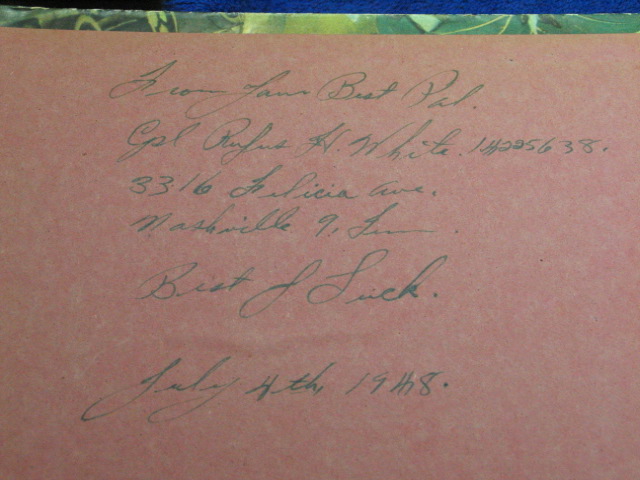 From Your Best Pal.
Cpl Rufus H. White. 14225638.
3316 Felicia Ave.
Nashville 9, Tenn.
Best of Luck.
July 4th, 1948.